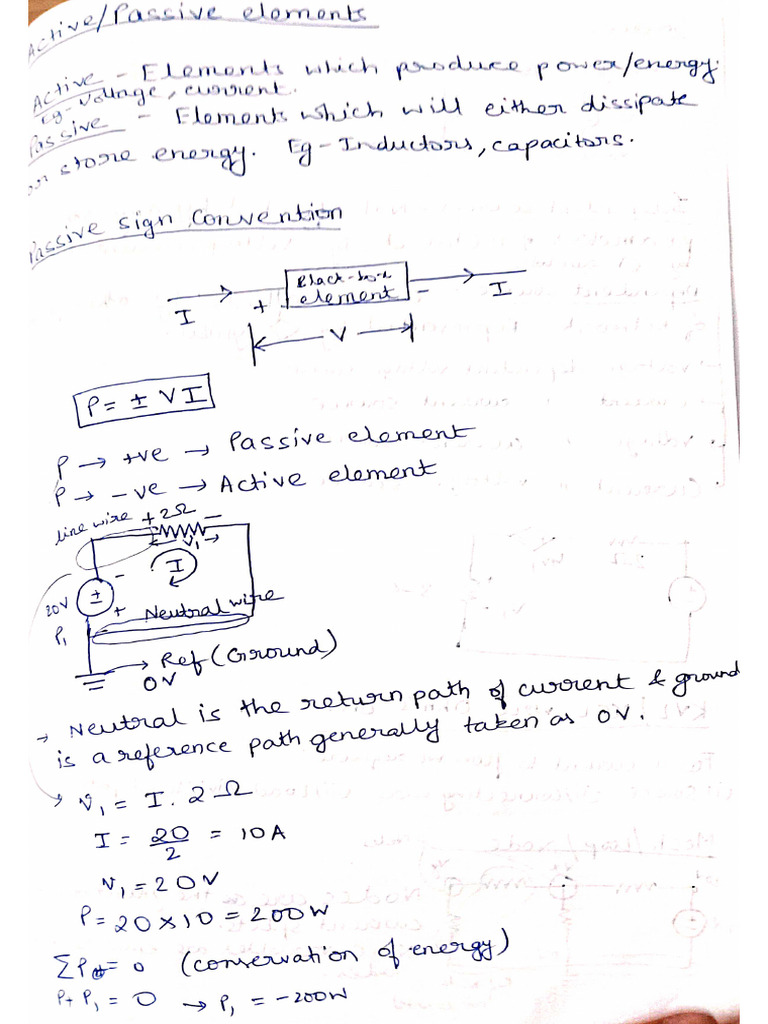 Active/Passive elements
Active - Elements which produce power/energy.
Eg - Voltage, current.
Passive - Elements which will either dissipate
or store energy. Eg - Inductors, capacitors.
Passive sign convention
Black-box
element
I + - I
V
P = ± VI
P → +ve → Passive element
P → -ve → Active element
line wire + 2Ω -
V₁ →
I
-
20V ±
+ Neutral wire
P₁
→ Ref (Ground)
0V
→ Neutral is the return path of current & ground
is a reference path generally taken as 0V.
→ V₁ = I. 2Ω
I = 20/2 = 10A
V₁ = 20V
P = 20 × 10 = 200W
ΣP = 0 (conservation of energy)
P + P₁ = 0 → P₁ = -200W